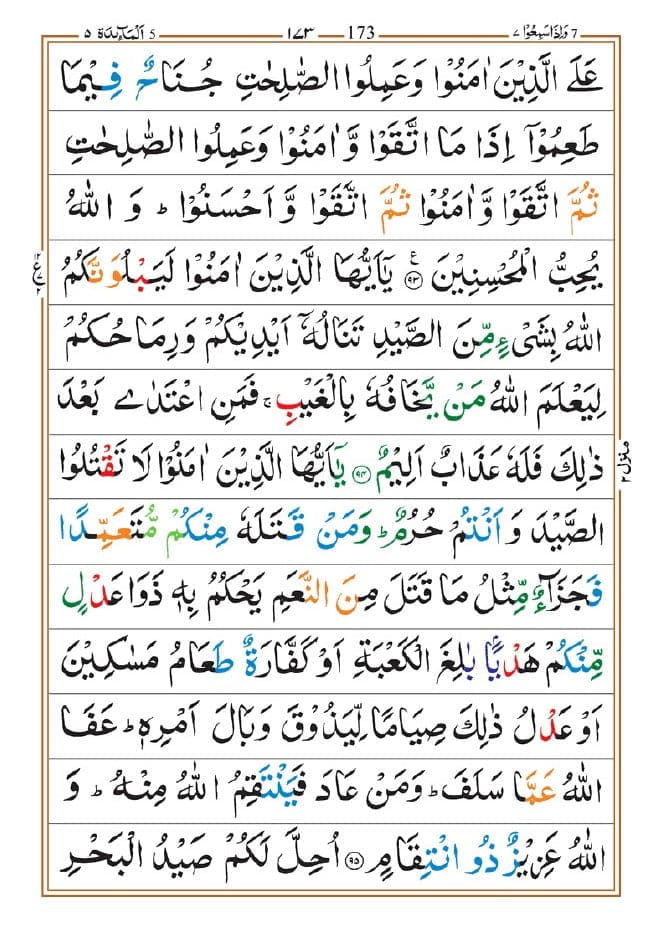 7 وَاِذَا سَمِعُوْا ٧ 173 ١٧٣ اَلْمَآئِدَة 5 ٥
عَلَى الَّذِيْنَ اٰمَنُوْا وَعَمِلُوا الصّٰلِحٰتِ جُنَاحٌ فِيْمَا
طَعِمُوْۤا اِذَا مَا اتَّقَوْا وَّاٰمَنُوْا وَعَمِلُوا الصّٰلِحٰتِ
ثُمَّ اتَّقَوْا وَّاٰمَنُوْا ثُمَّ اتَّقَوْا وَّاَحْسَنُوْا ؕ وَ اللّٰهُ
يُحِبُّ الْمُحْسِنِيْنَ ﴿٩٣﴾ يٰۤاَيُّهَا الَّذِيْنَ اٰمَنُوْا لَيَبْلُوَنَّكُمُ
ع
اللّٰهُ بِشَىْءٍ مِّنَ الصَّيْدِ تَنَالُهٗۤ اَيْدِيْكُمْ وَرِمَاحُكُمْ
لِيَعْلَمَ اللّٰهُ مَنْ يَّخَافُهٗ بِالْغَيْبِ ۚ فَمَنِ اعْتَدٰى بَعْدَ
ذٰلِكَ فَلَهٗ عَذَابٌ اَلِيْمٌ ﴿٩٤﴾ يٰۤاَيُّهَا الَّذِيْنَ اٰمَنُوْا لَا تَقْتُلُوا
منزل ٢
الصَّيْدَ وَ اَنْتُمْ حُرُمٌ ؕ وَمَنْ قَتَلَهٗ مِنْكُمْ مُّتَعَمِّدًا
فَجَزَآءٌ مِّثْلُ مَا قَتَلَ مِنَ النَّعَمِ يَحْكُمُ بِهٖ ذَوَا عَدْلٍ
مِّنْكُمْ هَدْيًۢا بٰلِغَ الْكَعْبَةِ اَوْ كَفَّارَةٌ طَعَامُ مَسٰكِيْنَ
اَوْ عَدْلُ ذٰلِكَ صِيَامًا لِّيَذُوْقَ وَبَالَ اَمْرِهٖ ؕ عَفَا
اللّٰهُ عَمَّا سَلَفَ ؕ وَمَنْ عَادَ فَيَنْتَقِمُ اللّٰهُ مِنْهُ ؕ وَ
اللّٰهُ عَزِيْزٌ ذُو انْتِقَامٍ ﴿٩٥﴾ اُحِلَّ لَكُمْ صَيْدُ الْبَحْرِ